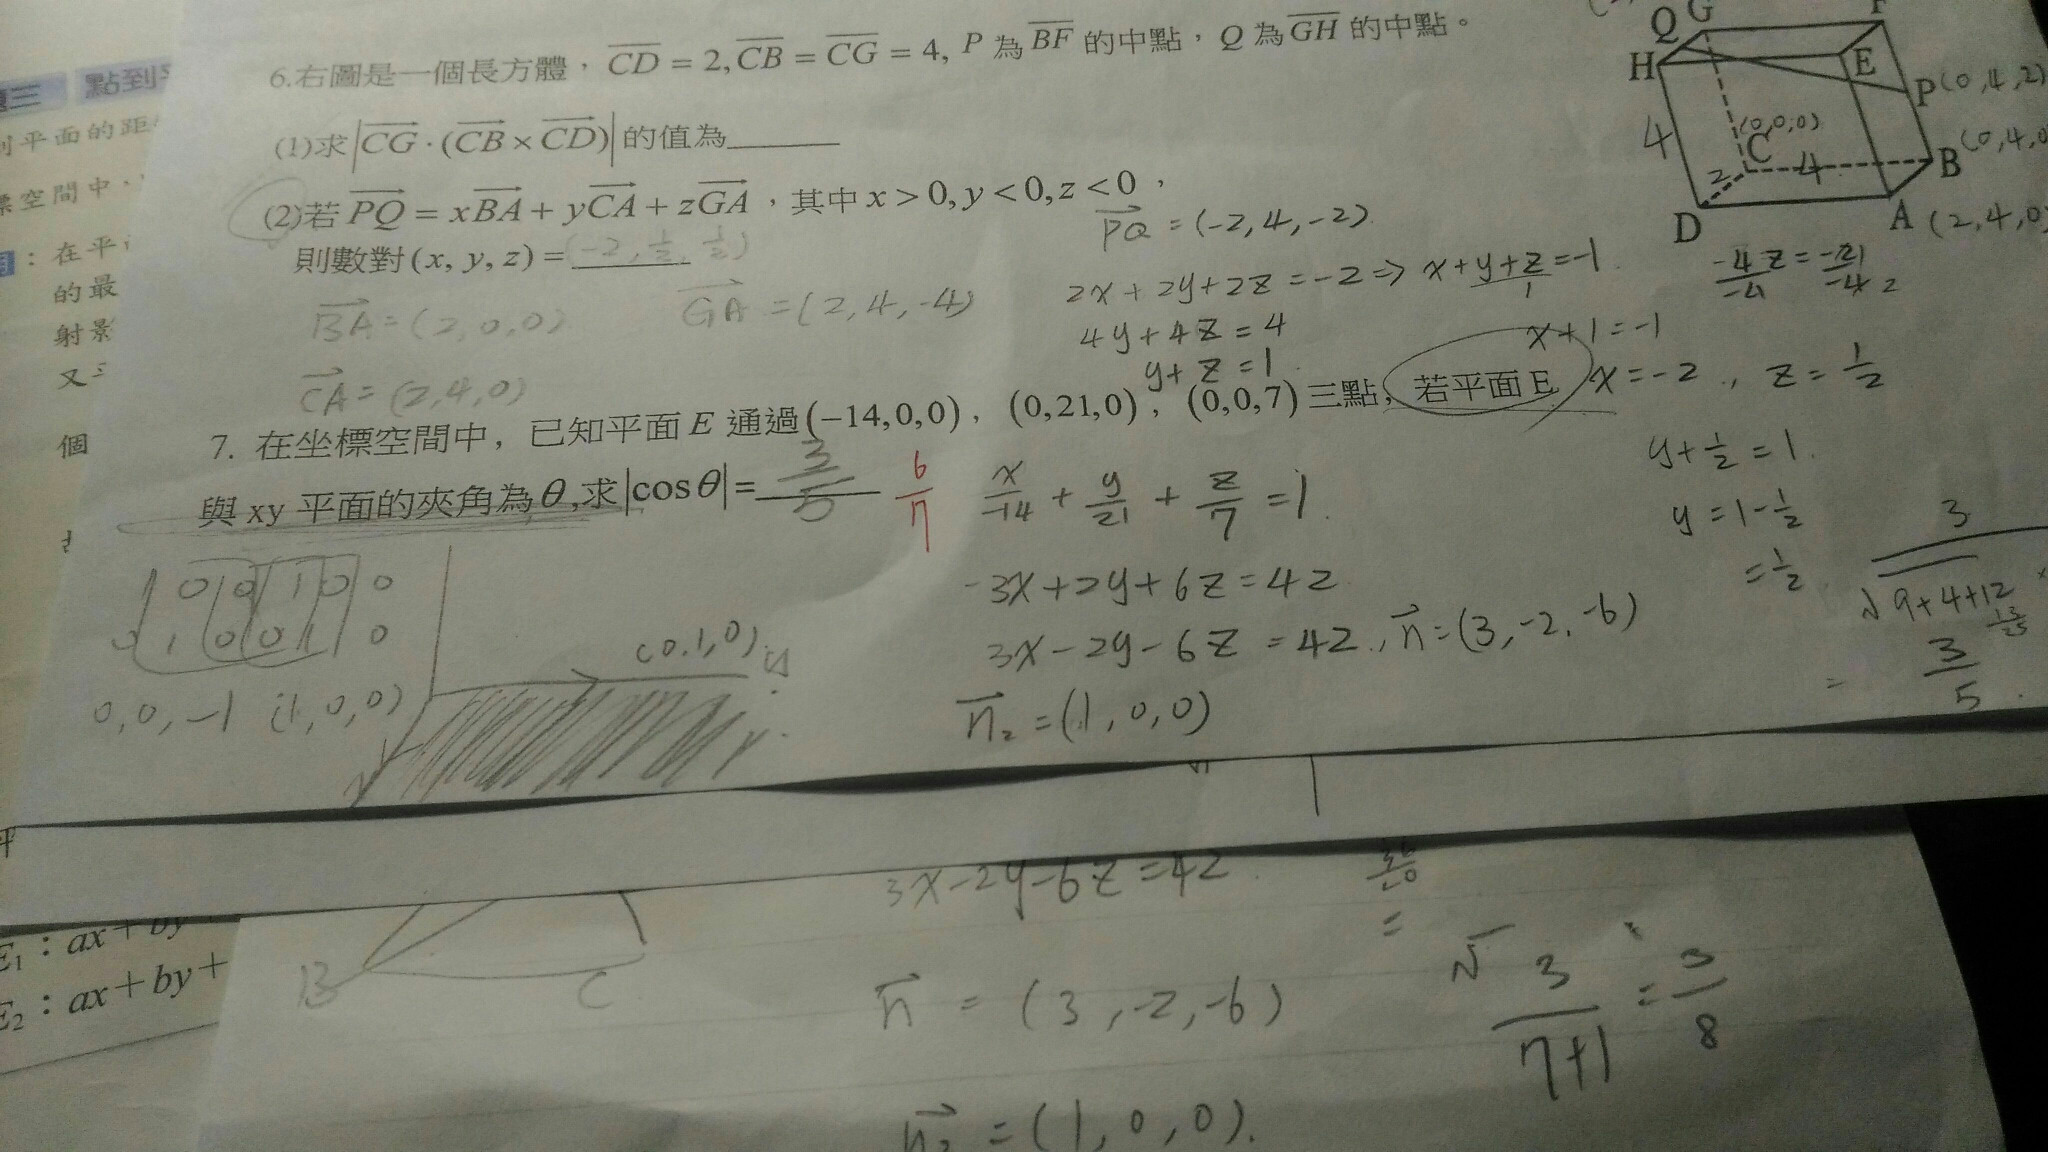 點到
到平面的距
標空間中，
：在平
的最
射影
又
個
6.右圖是一個長方體，CD = 2, CB = CG = 4, P 為 BF 的中點，Q 為 GH 的中點。
(1)求|CG·(CB×CD)|的值為______
(2)若 PQ = xBA + yCA + zGA，其中 x > 0, y < 0, z < 0，
則數對(x, y, z) = (-2, 1/2, 1/2)
BA = (2,0,0)
GA = (2,4,-4)
CA = (2,4,0)
PQ = (-2,4,-2)
2x+2y+2z=-2 => x+y+z=-1
1
4y+4z=4
y+z=1
x+1=-1
x=-2, z=1/2
y+1/2=1
y=1-1/2
=1/2
Q G F
H E
P (0,4,2)
4
(0,0,0)
C
2 4
B (0,4,0
D A (2,4,0)
7. 在坐標空間中，已知平面 E 通過(−14,0,0)，(0,21,0)，(0,0,7)三點，若平面 E
與 xy 平面的夾角為θ,求|cosθ|= 3/5 6/7
x/-14 + y/21 + z/7 = 1
-3x+2y+6z=42
3x-2y-6z=42, n=(3,-2,-6)
n₂=(1,0,0)
1 0 0 1 0 0
0 1 0 0 1 0
0,0,-1 (1,0,0)
(0,1,0) y
3
√9+4+12
= 3/5
3x-2y-6z=42
n = (3,-2,-6)
3/7+1 = 3/8
n₂=(1,0,0).
B C
E₁：ax+by
E₂：ax+by+